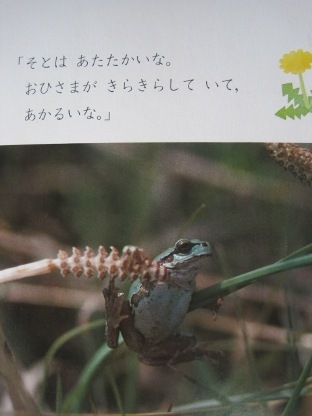 「そとは あたたかいな。
おひさまが きらきらして いて，
あかるいな。」